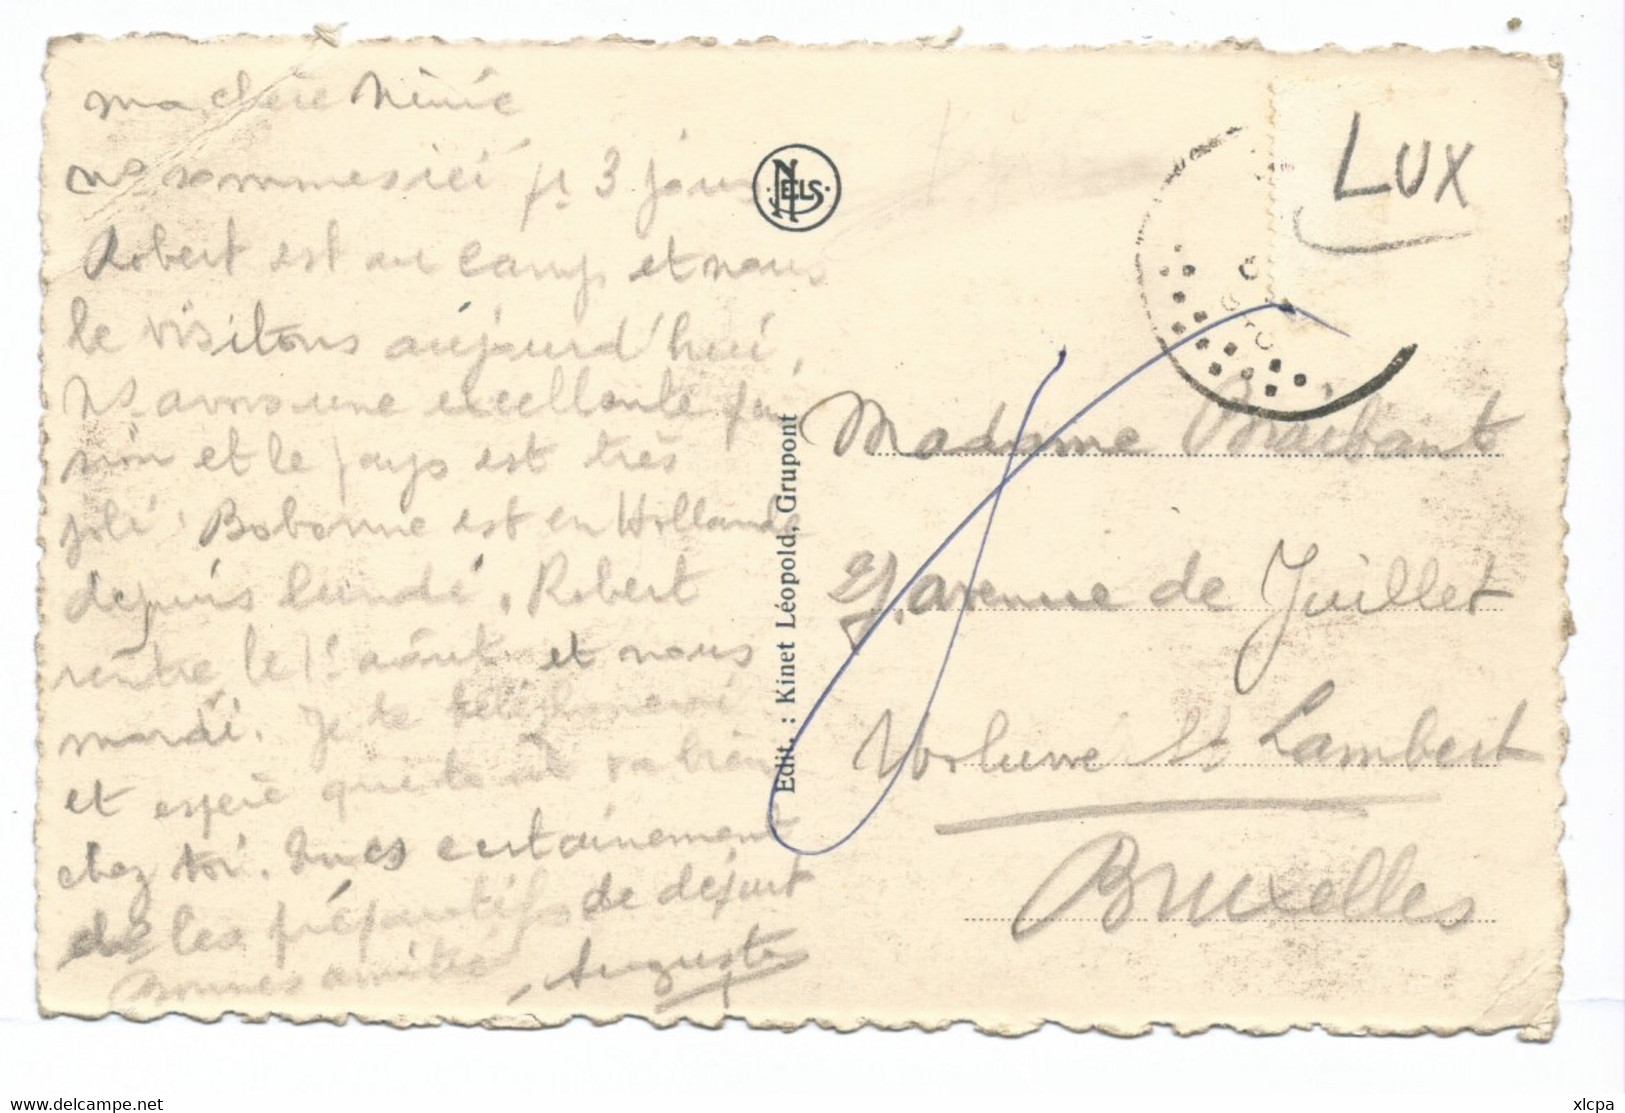 Ma chère Ninie
ns sommes ici pr 3 jours
Robert est au camp et nous
le visitons aujourd'hui,
Ns avons une excellente
et le pays est très
joli. Bobonne est en Hollande
depuis lundi. Robert
rentre le 1r août et nous
mardi. Je te téléphonerai
et espère que tout va bien
chez toi. es certainement
les préparatifs de départ
Bonnes amitiés
Auguste
NELS
Edit. : Kinet Léopold, Grupont
LUX
Madame Braibant
avenue de Juillet
Woluwe St Lambert
Bruxelles
www.delcampe.net
xlcpa